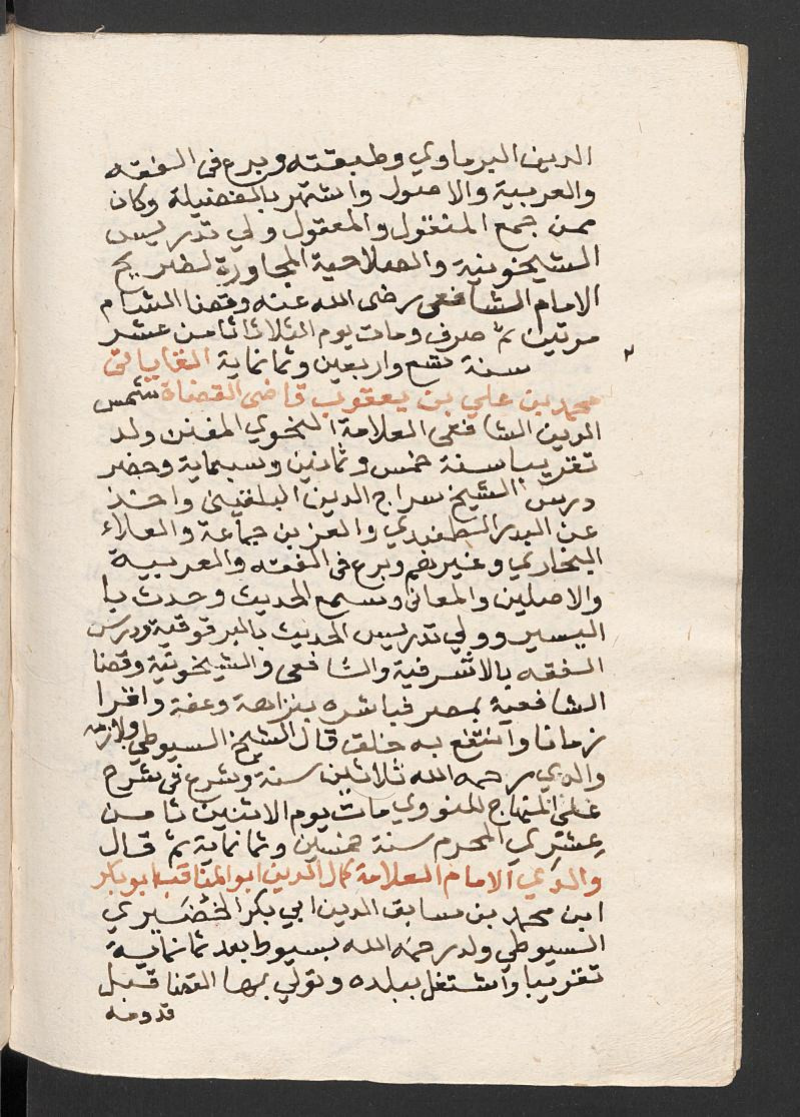 الدين البرماوي وطبقته وبرع في الفقه
والعربية والاصول واشتهر بالفضيلة وكان
ممن جمع المنقول والمعقول ولي تدريس
الشيخونية والصلاحية المجاورة لضريح
الامام الشافعي رضى الله عنه وقضا الشام
مرتين ثم صرف ومات يوم الثلاثا ثامن عشر
سنة تسع واربعين وثمانماية القاياتي
محمد بن علي بن يعقوب قاضى القضاة شمس
الدين الشافعى العلامة النحوي المفنن ولد
تقريبا سنة خمس وثمانين وسبعماية وحضر
درس الشيخ سراج الدين البلقيني واخذ
عن البدر الطنبدي والعز بن جماعة والعلاء
البخاري وغيرهم وبرع في الفقه والعربية
والاصلين والمعاني وسمع الحديث وحدث با
اليسير وولي تدريس الحديث بالبرقوقية ودرس
الفقه بالاشرفية والشافعى والشيخونية وقضا
الشافعية بمصر فباشره بنزاهة وعفة واقرا
زمانا وانتفع به خلق قال الشيخ السيوطي ولازمه
والدي رحمه الله ثلاثين سنة وشرع في شرح
على المنهاج للنووي مات يوم الاثنين ثامن
عشري المحرم سنة خمسين وثمانماية ثم قال
والدي الامام العلامة كمال الدين ابو المناقب ابو بكر
ابن محمد بن سابق الدين ابي بكر الخضيري
السيوطي ولد رحمه الله بسيوط بعد ثمانماية
تقريبا واشتغل ببلده وتولي بها القضا قبل
قدومه